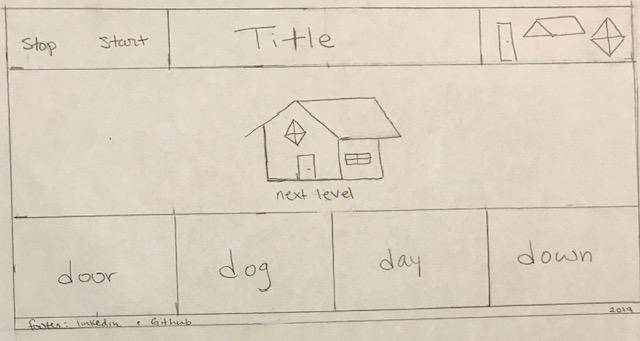 Stop Start Title
next level
door dog day down
footer: linkedin • Github 2019